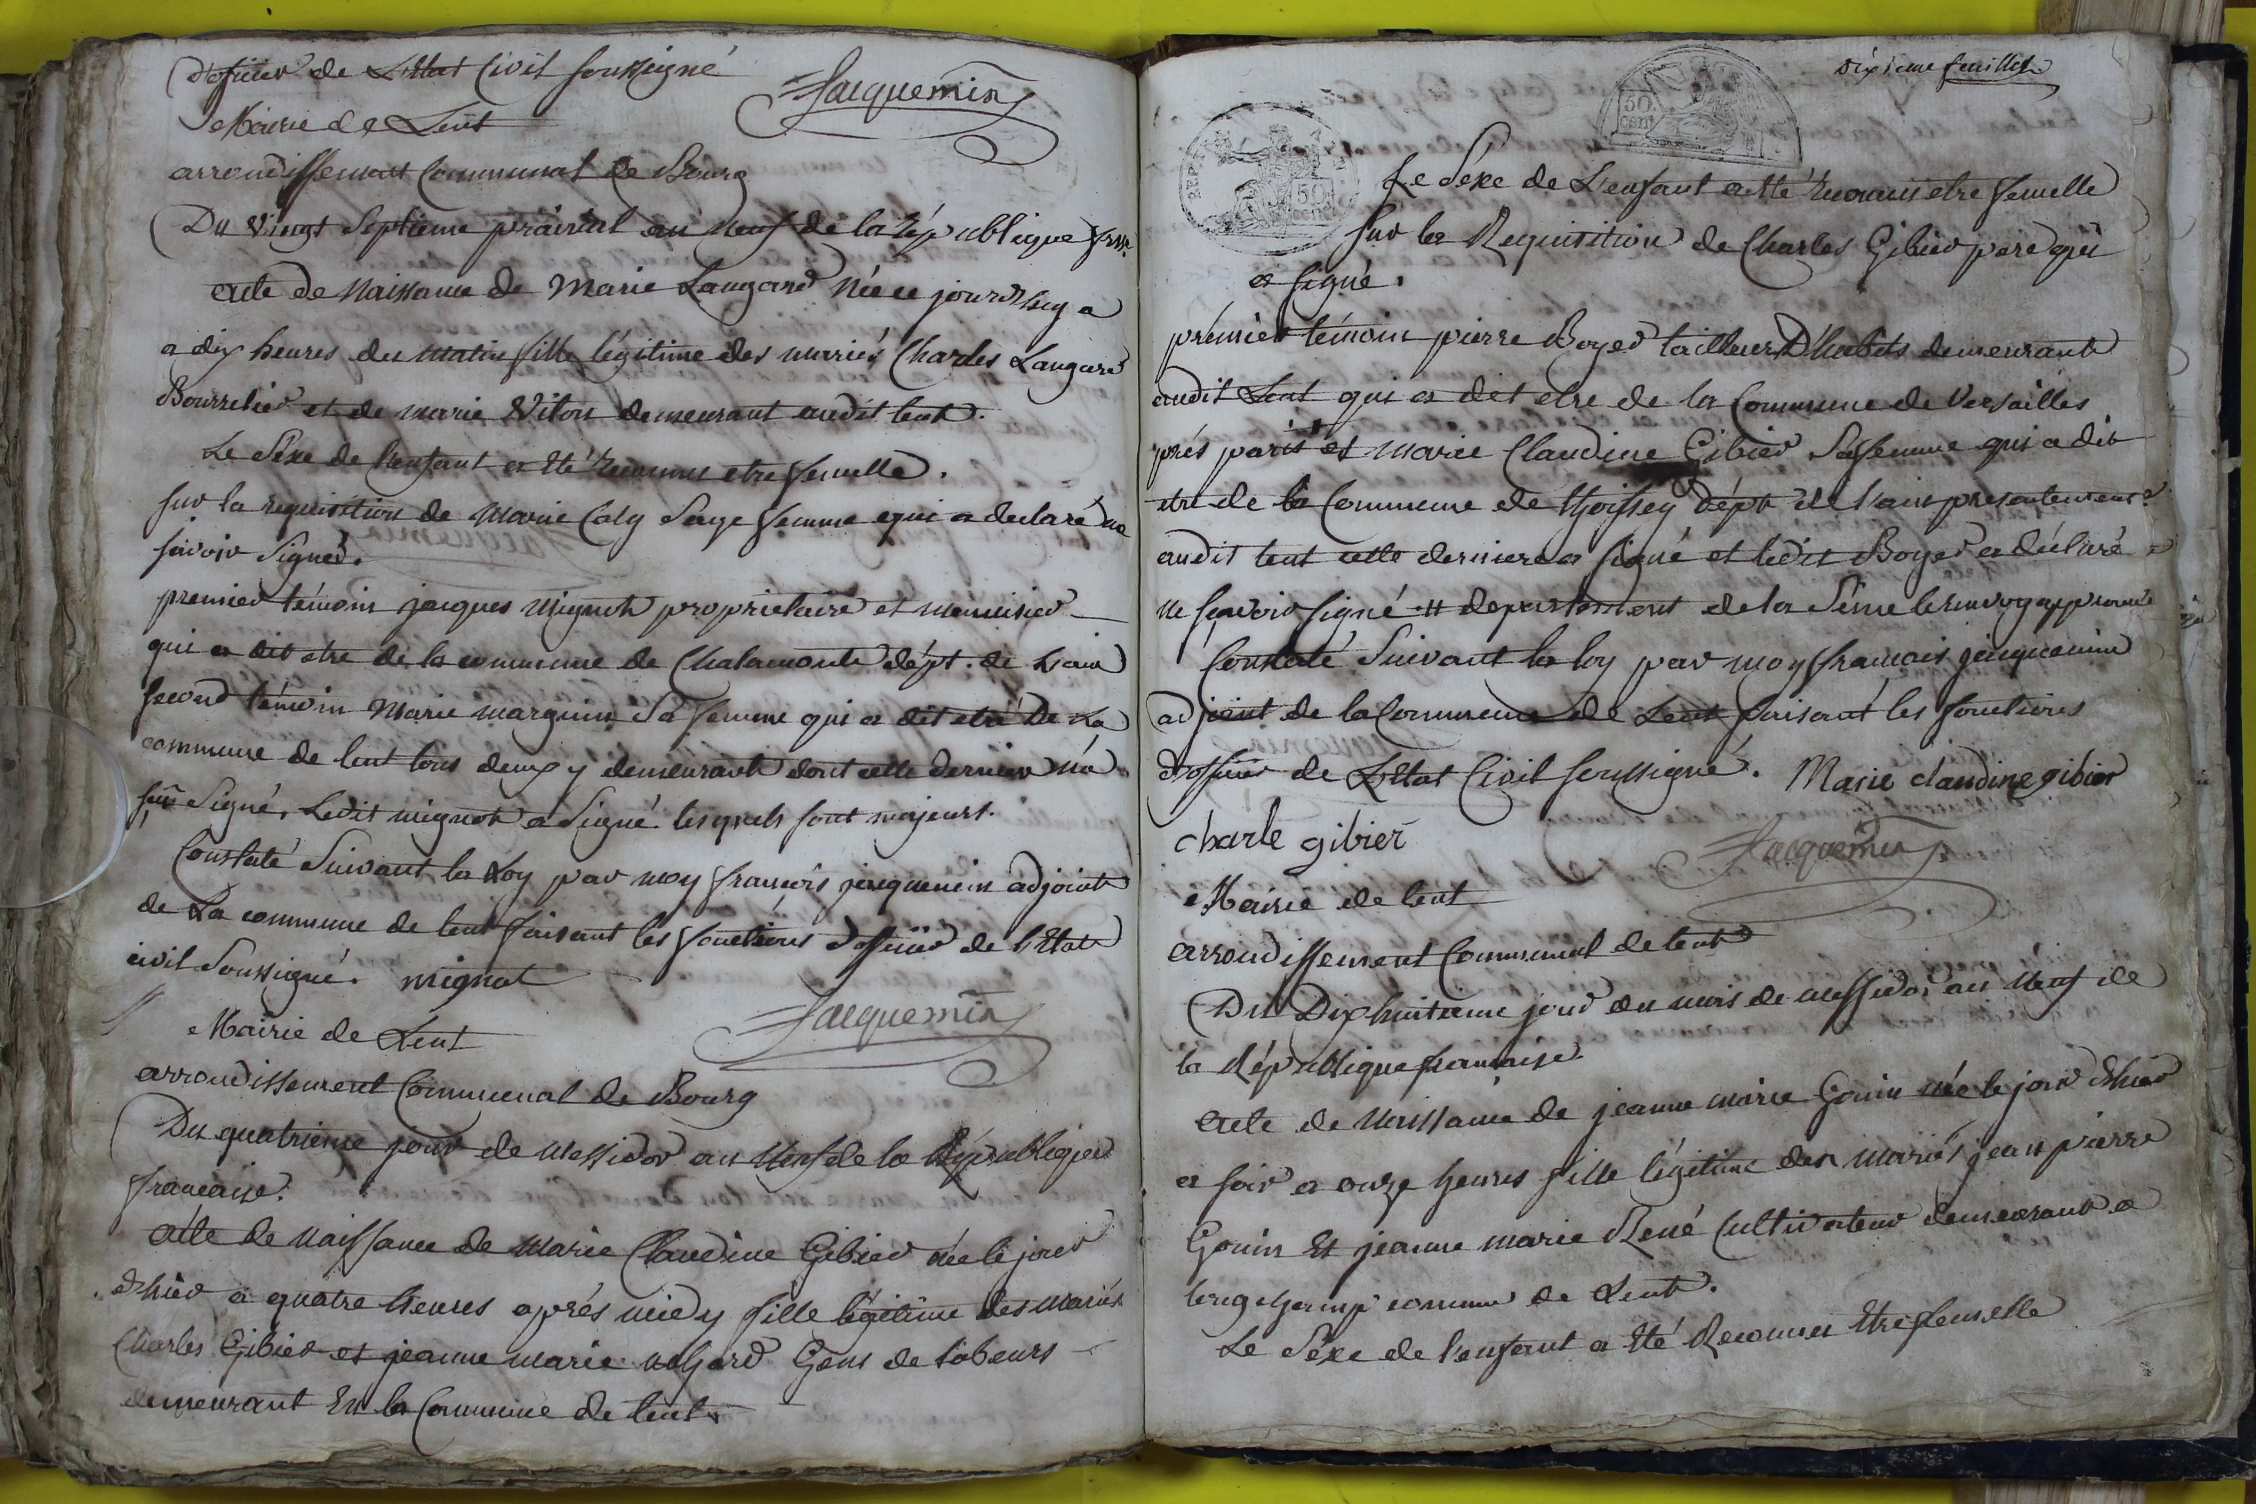 d'officier de L'Etat Civil soussigné
Jacquemin
Mairie de Lent
arrondissement Communal de Bourg
Du vingt Septieme prairial an neuf de la république franc
acte de Naissance de Marie Laugard Née ce jourdhuy a
a dix heures du matin fille légitime des mariés Charles Laugard
Bourrelier et de marie Viton demeurant audit lent.
Le Séxe de l'enfant a été reconnu etre femelle.
sur la requisition de Marie Caly Sage femme qui a declaré ne
savoir Signer.
premier témoin jacques mignot proprietaire et menuisier
qui a dit etre de la commune de Chalamont dépt. de L'ain
second témoin Marie marguin Sa femme qui a dit etre De La
commune de lent tous deux y demeurant dont cette derniere n'a
Signé, Ledit mignot a Signé. lesquels sont majeurs.
Constaté Suivant la Loy par moy françois jacquemin adjoint
de La commune de lent faisant les fonctions d'officier de l'Etat
civil Soussigné. mignot
Jacquemin
Mairie de Lent
arrondissement Communal de Bourg
Du quatrieme jour de Messidor an Neuf de la République
française.
acte de Naissance de Marie Claudine Gibier née le jour
d'hier a quatre heures aprés midy fille légitime des mariés
Charles Gibier et jeanne marie Gens de labeurs
demeurant En la Commune de lent.
Dixieme feuillet
50 cent
50 cent
Le Séxe de L'enfant a été reconnu etre femelle
Sur la Requisition de Charles Gibier pere qui
a signé.
prémier témoin pierre Boyer tailleur D'habits demeurant
audit Lent qui a dit etre de la Commune de Versailles
prés paris et Marie Claudine Gibier Sa femme qui a dit
etre de la Commune de thoissey dépt de l'ain presentement
audit lent cette derniere a signé et ledit Boyer a déclaré
ne sçavoir signé # departement de la Séine le renvoy approuvé
Constaté Suivant la loy par moy francois jacquemin
adjoint de la Commune de Lent faisant les fonctions
d'officier de L'Etat Civil soussigné. Marie claudine gibier
charle gibier
Jacquemin
Mairie de lent
arrondissement Communal de lent
Du Dixhuitieme jour du mois de messidor an Neuf de
la République francaise.
acte de Naissance de jeanne marie Gonin née le jour d'hier
a soir a onze heures fille légitime des mariés jean pierre
Gonin Et jeanne marie René Cultivateur demeurant a
longchamp commune de Lent.
Le Séxe de l'enfant a été Reconnu Etre femelle